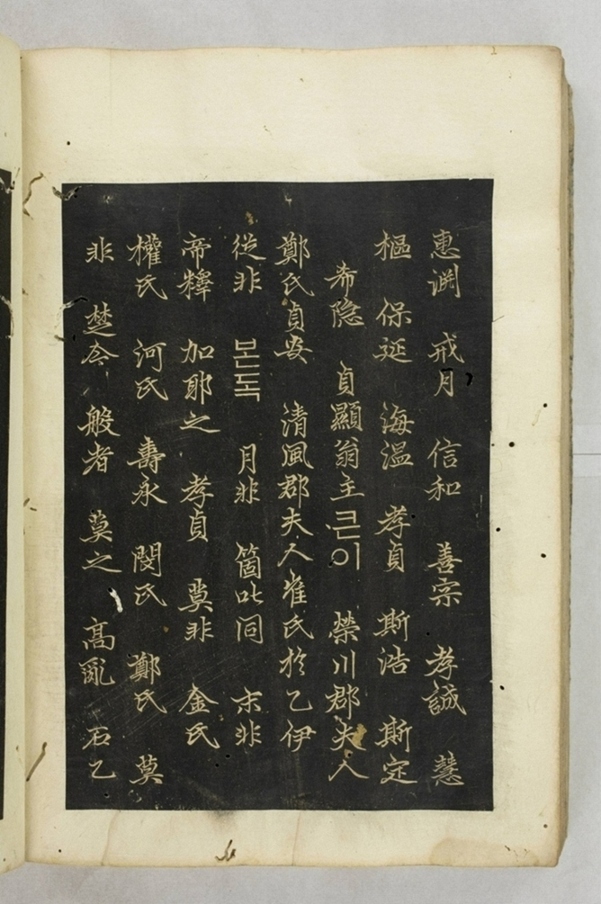 惠渊 戒月 信和 善宗 孝誠 慧
樞 保延 海温 孝貞 斯浩 斯定
希隐 貞顯翁主큰이 榮川郡夫人
鄭氏貞安 清風郡夫人崔氏於乙伊
從非 본독 月非 箇叱同 末非
帝釋 加耶之 孝貞 莫非 金氏
權氏 河氏 壽永 閔氏 鄭氏 莫
非 楚今 般者 莫之 高亂 石乙